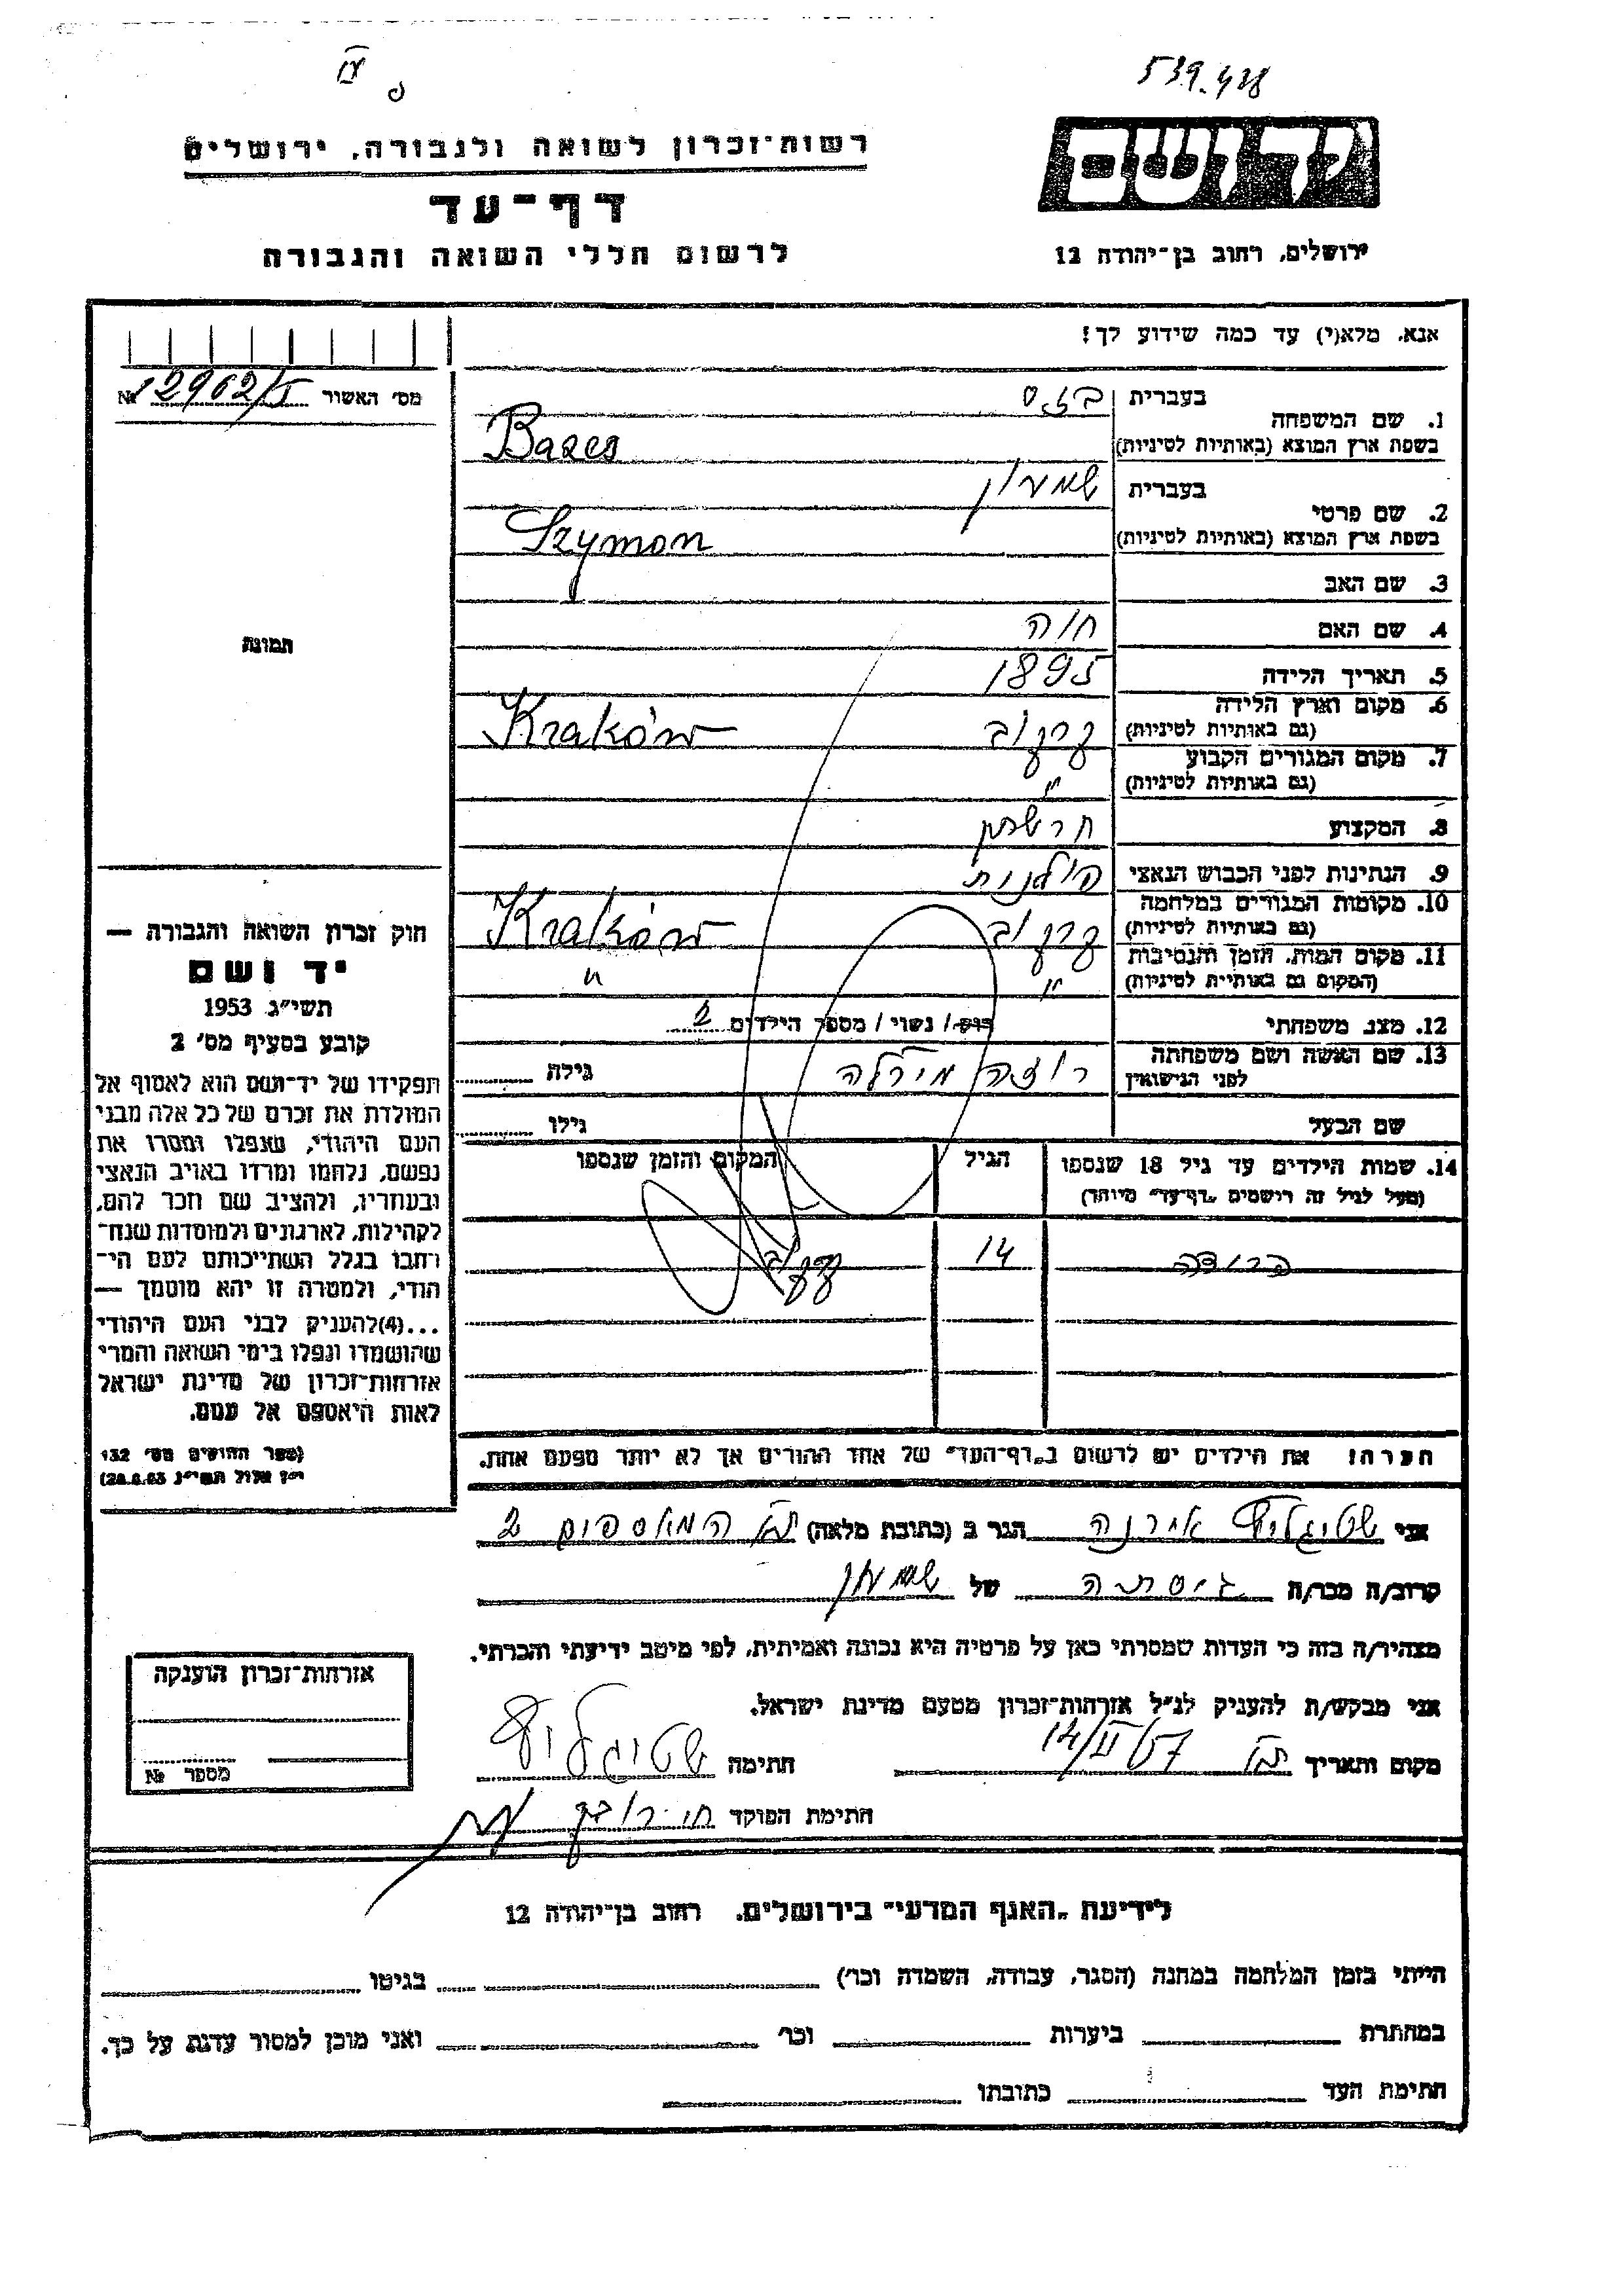 539.438
יד ושם
רשות־זכרון לשואה ולגבורה, ירושלים
דף־עד
לרשום חללי השואה והגבורה
ירושלים, רחוב בן־יהודה 12
אנא, מלא(י) עד כמה שידוע לך!
מס' האשור № 12962/5
1. שם המשפחה
בעברית בזס
בשפת ארץ המוצא (באותיות לטיניות) Bazes
2. שם פרטי
בעברית שמעון
בשפת ארץ המוצא (באותיות לטיניות) Szymon
3. שם האב
4. שם האם חוה
5. תאריך הלידה 1895
6. מקום וארץ הלידה
(גם באותיות לטיניות) קרקוב Kraków
7. מקום המגורים הקבוע
(גם באותיות לטיניות) "
8. המקצוע חרשתן
9. הנתינות לפני הכבוש הנאצי פולנית
10. מקומות המגורים במלחמה
(גם באותיות לטיניות) קרקוב Kraków
11. מקום המות, הזמן והנסיבות
(המקום גם באותיות לטיניות) " "
12. מצב משפחתי רוק / נשוי / מספר הילדים 2
13. שם האשה ושם משפחתה
לפני הנישואין רוזה מירלה גילה
שם הבעל גילו
14. שמות הילדים עד גיל 18 שנספו הגיל המקום והזמן שנספו
(מעל לגיל זה רושמים "דף־עד" מיוחד)
14 קרקוב
הערה! את הילדים יש לרשום ב"דף־העד" של אחד ההורים אך לא יותר מפעם אחת.
תמונה
חוק זכרון השואה והגבורה —
יד ושם
תשי"ג 1953
קובע בסעיף מס' 2
תפקידו של יד־ושם הוא לאסוף אל
המולדת את זכרם של כל אלה מבני
העם היהודי, שנפלו ומסרו את
נפשם, נלחמו ומרדו באויב הנאצי
ובעוזריו, ולהציב שם וזכר להם,
לקהילות, לארגונים ולמוסדות שנח־
רבו בגלל השתייכותם לעם הי־
הודי, ולמטרה זו יהא מוסמך —
...(4)להעניק לבני העם היהודי
שהושמדו ונפלו בימי השואה והמרי
אזרחות־זכרון של מדינת ישראל
לאות היאספם אל עמם.
(ספר החוקים מס' 132
י"ז אלול תשי"ג 28.8.53)
אני שטיגליץ אירנה הגר ב (כתובת מלאה) ת"א 2
קרוב/ה מכר/ה גיסתה של שמעון
מצהיר/ה בזה כי העדות שמסרתי כאן על פרטיה היא נכונה ואמיתית, לפי מיטב ידיעתי והכרתי.
אני מבקש/ת להעניק לנ"ל אזרחות־זכרון מטעם מדינת ישראל.
מקום ותאריך ת"א 14/II/57 חתימה שטיגליץ
חתימת הפוקד
אזרחות־זכרון הוענקה
מספר №
לידיעת "האגף המדעי" בירושלים, רחוב בן־יהודה 12
הייתי בזמן המלחמה במחנה (הסגר, עבודה, השמדה וכו') בגיטו
במחתרת ביערות וכו' ואני מוכן למסור עדות על כך.
חתימת העד כתובתו